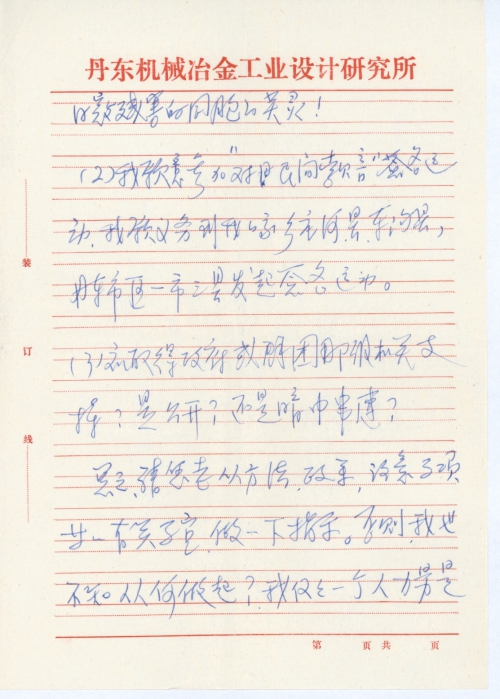 丹东机械冶金工业设计研究所
残害的同胞的英灵！
(2)我愿意参加"对日民间索赔"签名运
动，我愿义务到我的家乡
丹东市区一市三县发起签名运动。
(3)取得政府或群团那级机关支
持？是公开？还是暗中串连？
总之，请您老从方法、政策、注意事项
等一有关事宜，做一下指示。否则，我也
不知从何做起？我仅仅一个人力量是
装
订
线
第 页 共 页